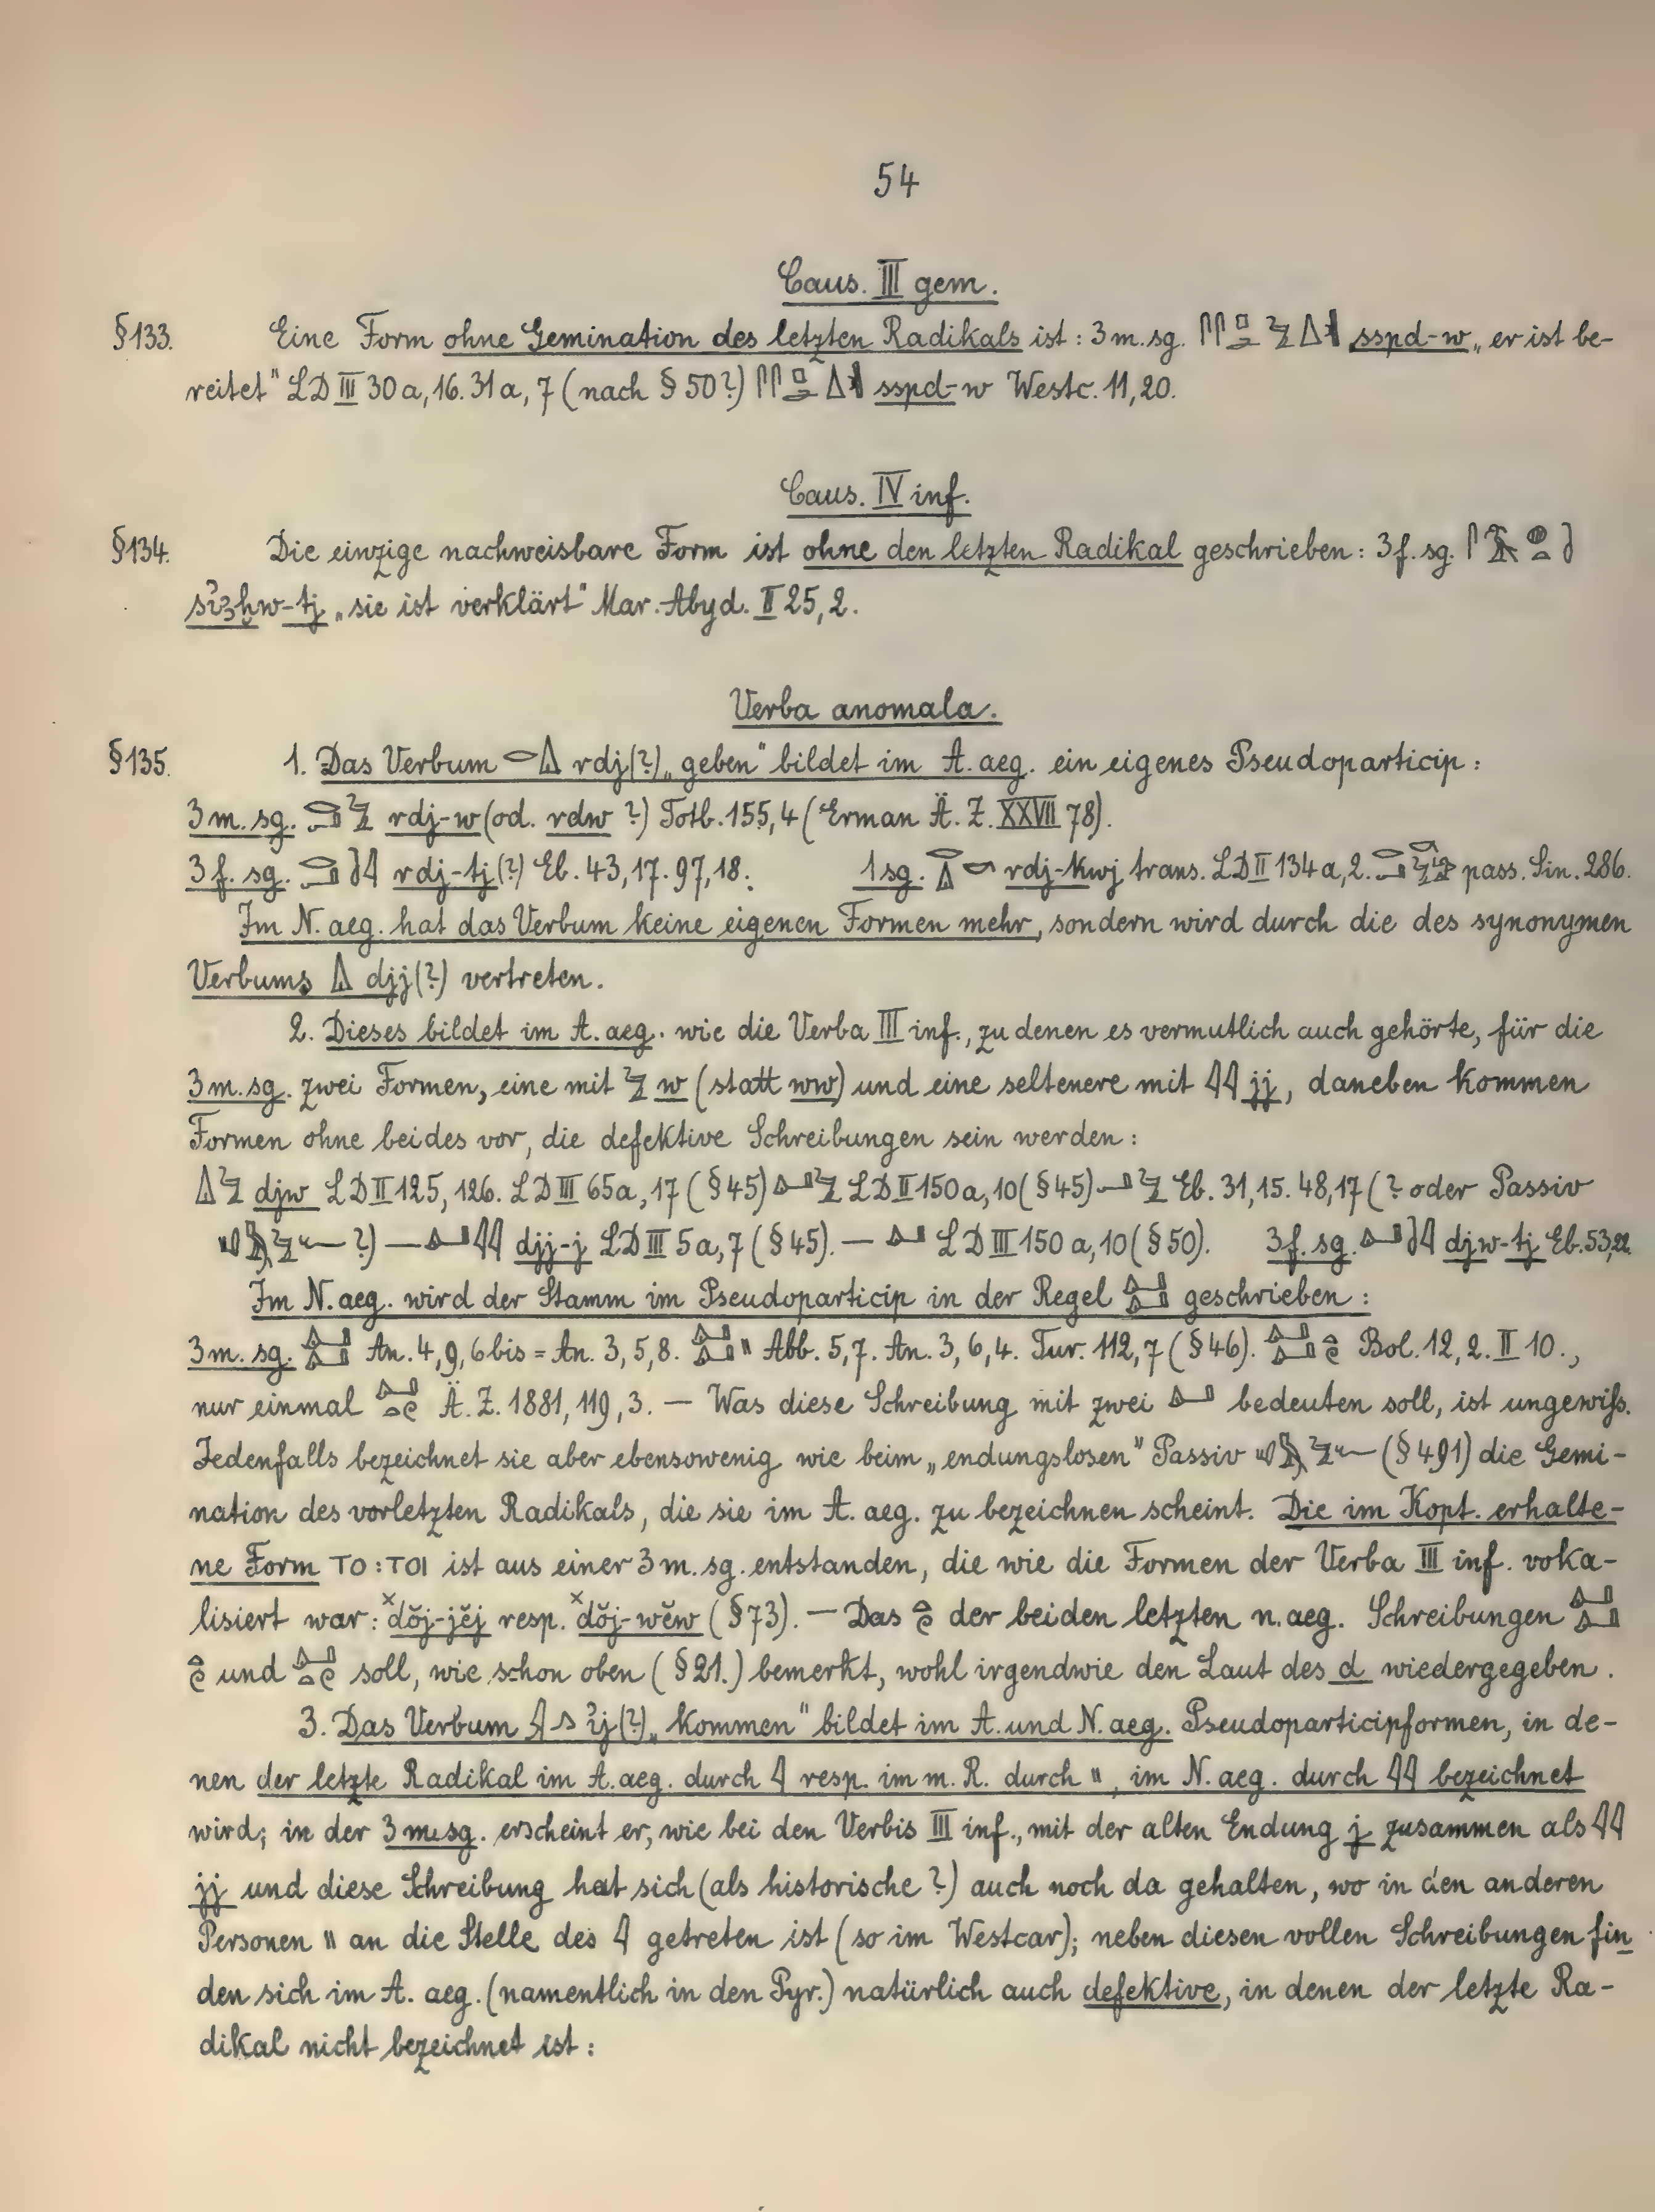 54
Caus. III gem.
§133. Eine Form ohne Gemination des letzten Radikals ist: 3 m. sg. sspd-w „er ist be-
reitet" LD III 30a, 16. 31a, 7 (nach § 50?) sspd-w Westc. 11,20.
Caus. IV inf.
§134. Die einzige nachweisbare Form ist ohne den letzten Radikal geschrieben: 3 f. sg.
„sie ist verklärt" Mar. Abyd. II 25,2.
Verba anomala.
§135. 1. Das Verbum rdj(?) „geben" bildet im A. aeg. ein eigenes Pseudoparticip:
3 m. sg. rdj-w (od. rdw ?) Totb. 155,4 (Erman Ä. Z. XXVII 78).
3 f. sg. rdj-tj(?) Eb. 43,17. 97,18. 1 sg. rdj-kwj trans. LD II 134a, 2. pass. Sin. 286.
Im N. aeg. hat das Verbum keine eigenen Formen mehr, sondern wird durch die des synonymen
Verbums djj(?) vertreten.
2. Dieses bildet im A. aeg. wie die Verba III inf., zu denen es vermutlich auch gehörte, für die
3 m. sg. zwei Formen, eine mit w (statt ww) und eine seltenere mit 𓇋𓇋 jj, daneben kommen
Formen ohne beides vor, die defektive Schreibungen sein werden:
djw LD II 125, 126. LD III 65a, 17 (§45) LD II 150a, 10 (§45) Eb. 31,15. 48,17 (? oder Passiv
?) — djj-j LD III 5a, 7 (§45). — LD III 150a, 10 (§50). 3 f. sg. djw-tj Eb. 53,22.
Im N. aeg. wird der Stamm im Pseudoparticip in der Regel geschrieben:
3 m. sg. An. 4, 9, 6 bis = An. 3, 5, 8. Abb. 5, 7. An. 3, 6, 4. Tur. 112, 7 (§46). Bol. 12, 2. II 10.,
nur einmal Ä. Z. 1881, 119, 3. — Was diese Schreibung mit zwei bedeuten soll, ist ungewiß.
Jedenfalls bezeichnet sie aber ebensowenig wie beim „endungslosen" Passiv (§491) die Gemi-
nation des vorletzten Radikals, die sie im A. aeg. zu bezeichnen scheint. Die im Kopt. erhalte-
ne Form ⲦⲞ : ⲦⲞⲒ ist aus einer 3 m. sg. entstanden, die wie die Formen der Verba III inf. voka-
lisiert war: ˣdŏj-jĕj resp. ˣdŏj-wĕw (§73). — Das der beiden letzten n. aeg. Schreibungen
und soll, wie schon oben (§21.) bemerkt, wohl irgendwie den Laut des d wiedergegeben.
3. Das Verbum ꜥij(?) „kommen" bildet im A. und N. aeg. Pseudoparticipformen, in de-
nen der letzte Radikal im A. aeg. durch 𓇋 resp. im m. R. durch \\, im N. aeg. durch 𓇋𓇋 bezeichnet
wird; in der 3 m. sg. erscheint er, wie bei den Verbis III inf., mit der alten Endung j zusammen als 𓇋𓇋
jj und diese Schreibung hat sich (als historische ?) auch noch da gehalten, wo in den anderen
Personen \\ an die Stelle des 𓇋 getreten ist (so im Westcar); neben diesen vollen Schreibungen fin
den sich im A. aeg. (namentlich in den Pyr.) natürlich auch defektive, in denen der letzte Ra-
dikal nicht bezeichnet ist: